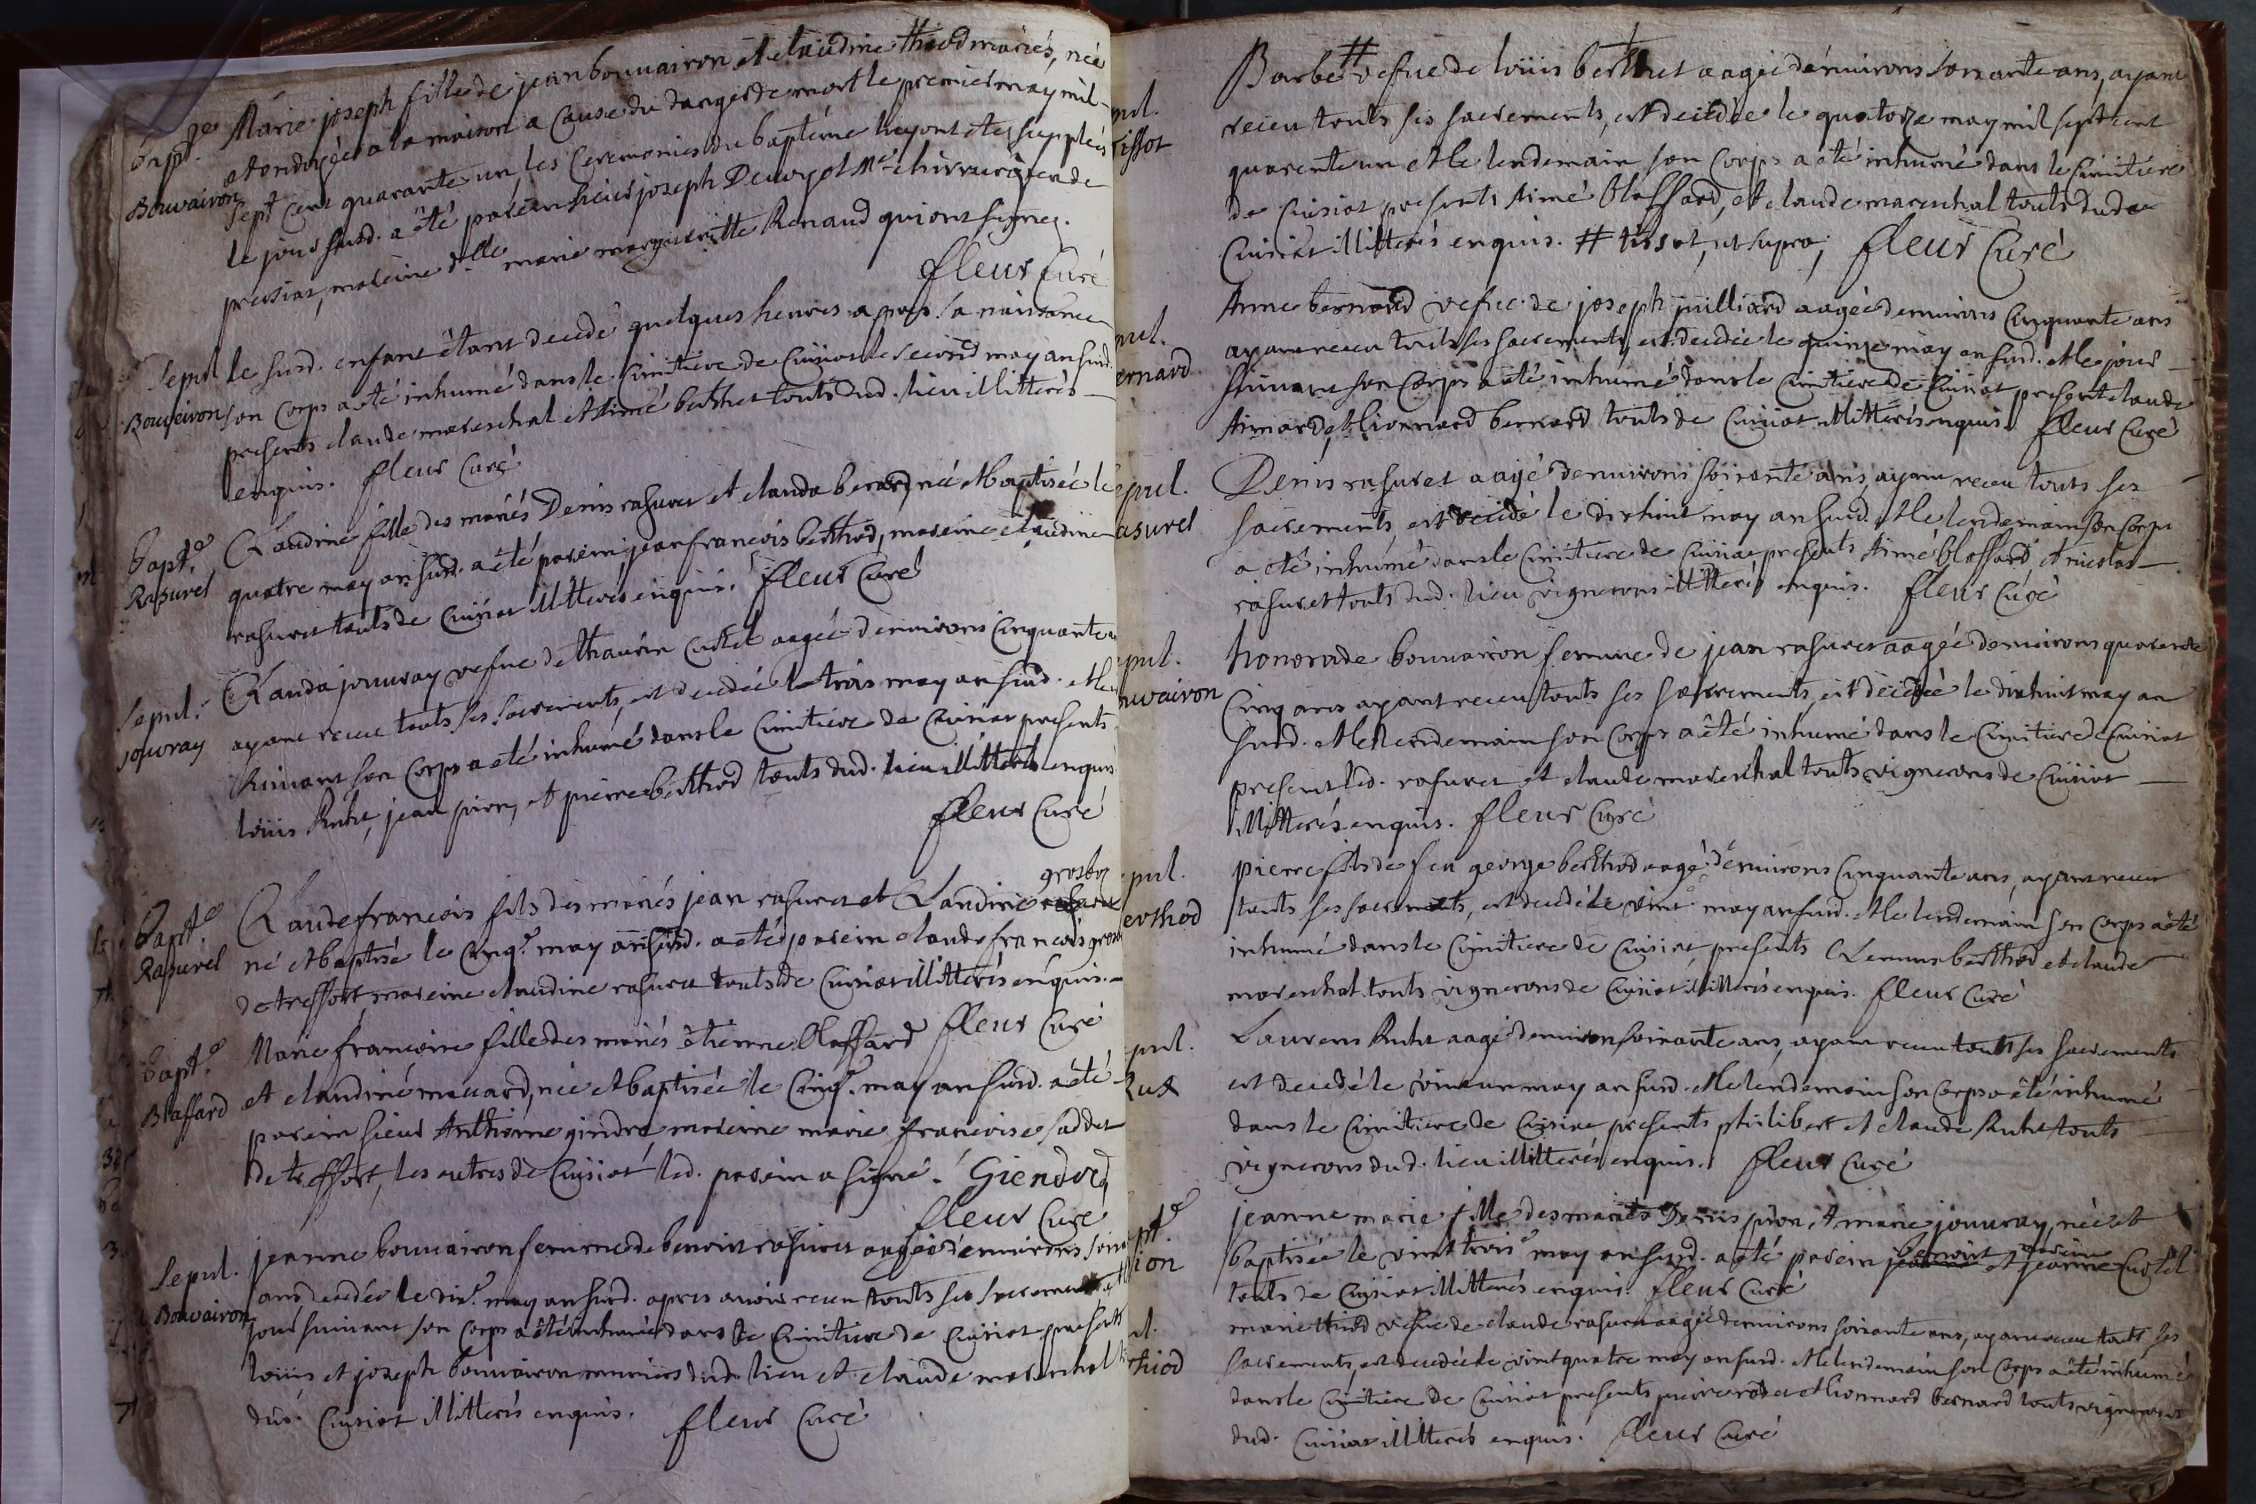 Bapt.e Marie joseph fille de jean bouvairon et claudine thiod mariés, née
Bouvairon et ondoyée a la maison a cause du danger de mort le premier may mil
sept cent quarante un les ceremonies du baptéme luy ont etez supplées
le jour susd. a été parein sieur joseph M.e chirurgien de
presiat, mareine d.lle marie margueritte Renaud qui ont signez.
fleur Curé
Sepul. le susd. enfant êtant decedé quelques heures apres sa naissance
Bouvairon son corps a eté inhumé dans le cimitiere de Cuisiat le second may an susd.
presents claude mareschal et Aimé berthet touts dud. lieu illitterés
enquis. fleur Curé
Bapt.e Claudine fille des mariés Denis rasurel et clauda berard, née et baptisée le
Rasurel quatre may an susd. a été parein jean francois berthod, mareine claudine
rasurel touts de Cuisiat illitterés enquis. fleur Curé
Sepul. Clauda jouvray vefve de thauvin Curtet aagée d'environs cinquante
jouvray ayant receu touts ses sacrements, est decedée le trois may an susd. et le
suivant son corps a eté inhumé dans le cimitiere de Cuisiat presents
loüis Ruht, jean pion, et pierre berthod touts dud. lieu illitterés enquis
fleur Curé
grosboz
Bapt.e Claude francois fils des mariés jean rasurel et Claudine
Rasurel né et baptisé le cinq.e may an susd. a eté parein claude francois gros
de treffort, mareine claudine rasurel touts de Cuisiat illitterés enquis.
Bapt.e Marie francoise fille des mariés êtienne Blaffard fleur Curé
Blaffard et claudine mauard, née et baptisée le cinq.e may an susd. a eté
parein sieur Anthoine gindre mareine marie francoise saddet
de treffort, les autres de Cuisiat led. parein a signé. Giendre
fleur Curé
Sepul. jeanne bouvairon femme de benoit rasurel aagée d'environs soix
Bouvairon ans decedée le dix.e may an susd. apres avoir receu touts ses sacrements et le
jour suivant son corps a été inhumé dans le cimitiere de Cuisiat presents
loüis et joseph bouvairon dud. lieu et claude mareschal
dud. Cuisiat illitterés enquis. fleur Curé
pul. Barbe # vefve de loüis berthet aagée d'environs soixante ans, ayant
issot receu touts ses sacrements, est decedée le quatorze may mil sept cent
quarente un et le lendemain son corps a eté inhumé dans le cimitiere
de Cuisiat presents Aimé blaffard, et claude mareschal touts dud.
Cuisiat illitterés enquis. # tissot, ut supra; fleur Curé
pul. Anne bernard vefve de joseph juilliard aagée d'environs cinquante ans
ernard ayant receu touts ses sacrements, est decedée le quinze may an susd. et le jour
suivant son corps a eté inhumé dans le cimitiere de Cuisiat present claude
Aimard, et lionnard bernard touts de Cuisiat illitterés enquis. fleur Curé
epul. Denis rasurel aagé d'environs soixante ans, ayant receu touts ses
asurel sacrements, est decedé le dixhuit may an susd. et le lendemain son corps
a eté inhumé dans le cimitiere de Cuisiat presents Aimé blaffard et nicolas
rasurel touts dud. lieu vignerons illitterés enquis. fleur Curé
pul. honorade bouvairon femme de jean rasurel aagée d'environs quarente
uvairon cinq ans ayant receu touts ses sacrements, est decedée le dixhuit may an
susd. et le lendemain son corps a été inhumé dans le cimitiere de Cuisiat
present led. rasurel et claude mareschal touts vignerons de Cuisiat
illitterés enquis. fleur Curé
pul. pierre fils de feu george berthod aagé d'environs cinquante ans, ayant receu
erthod touts ses sacrements, est decedé le vint.e may an susd. et le lendemain son corps a eté
inhumé dans le cimitiere de Cuisiat, presents berthod et claude
mareschal touts vignerons de Cuisiat illitterés enquis. fleur Curé
pul. Laurens Ruht aagé d'environ soixante ans, ayant receu touts ses sacrements
Rut est decedé le vint un may an susd. et le lendemain son corps a été inhumé
dans le cimitiere de Cuisiat presents philibert et claude Ruht touts
vignerons dud. lieu illitterés enquis. fleur Curé
pt.e jeanne marie fille des mariés Denis pion, et marie jouvray, née et
ion baptisée le vint trois.e may an susd. a eté parein benoist et mareine jeanne Curtet
touts de Cuisiat illitterés enquis. fleur Curé
ul. marie thiod vefve de claude rasurel aagée d'environs soixante ans, ayant receu touts ses
thiod sacrements, est decedée le vint quatre may an susd. et le lendemain son corps a été inhumé
dans le cimitiere de Cuisiat presents pierre et lionnard bernard touts vignerons
dud. Cuisiat illitterés enquis. fleur Curé